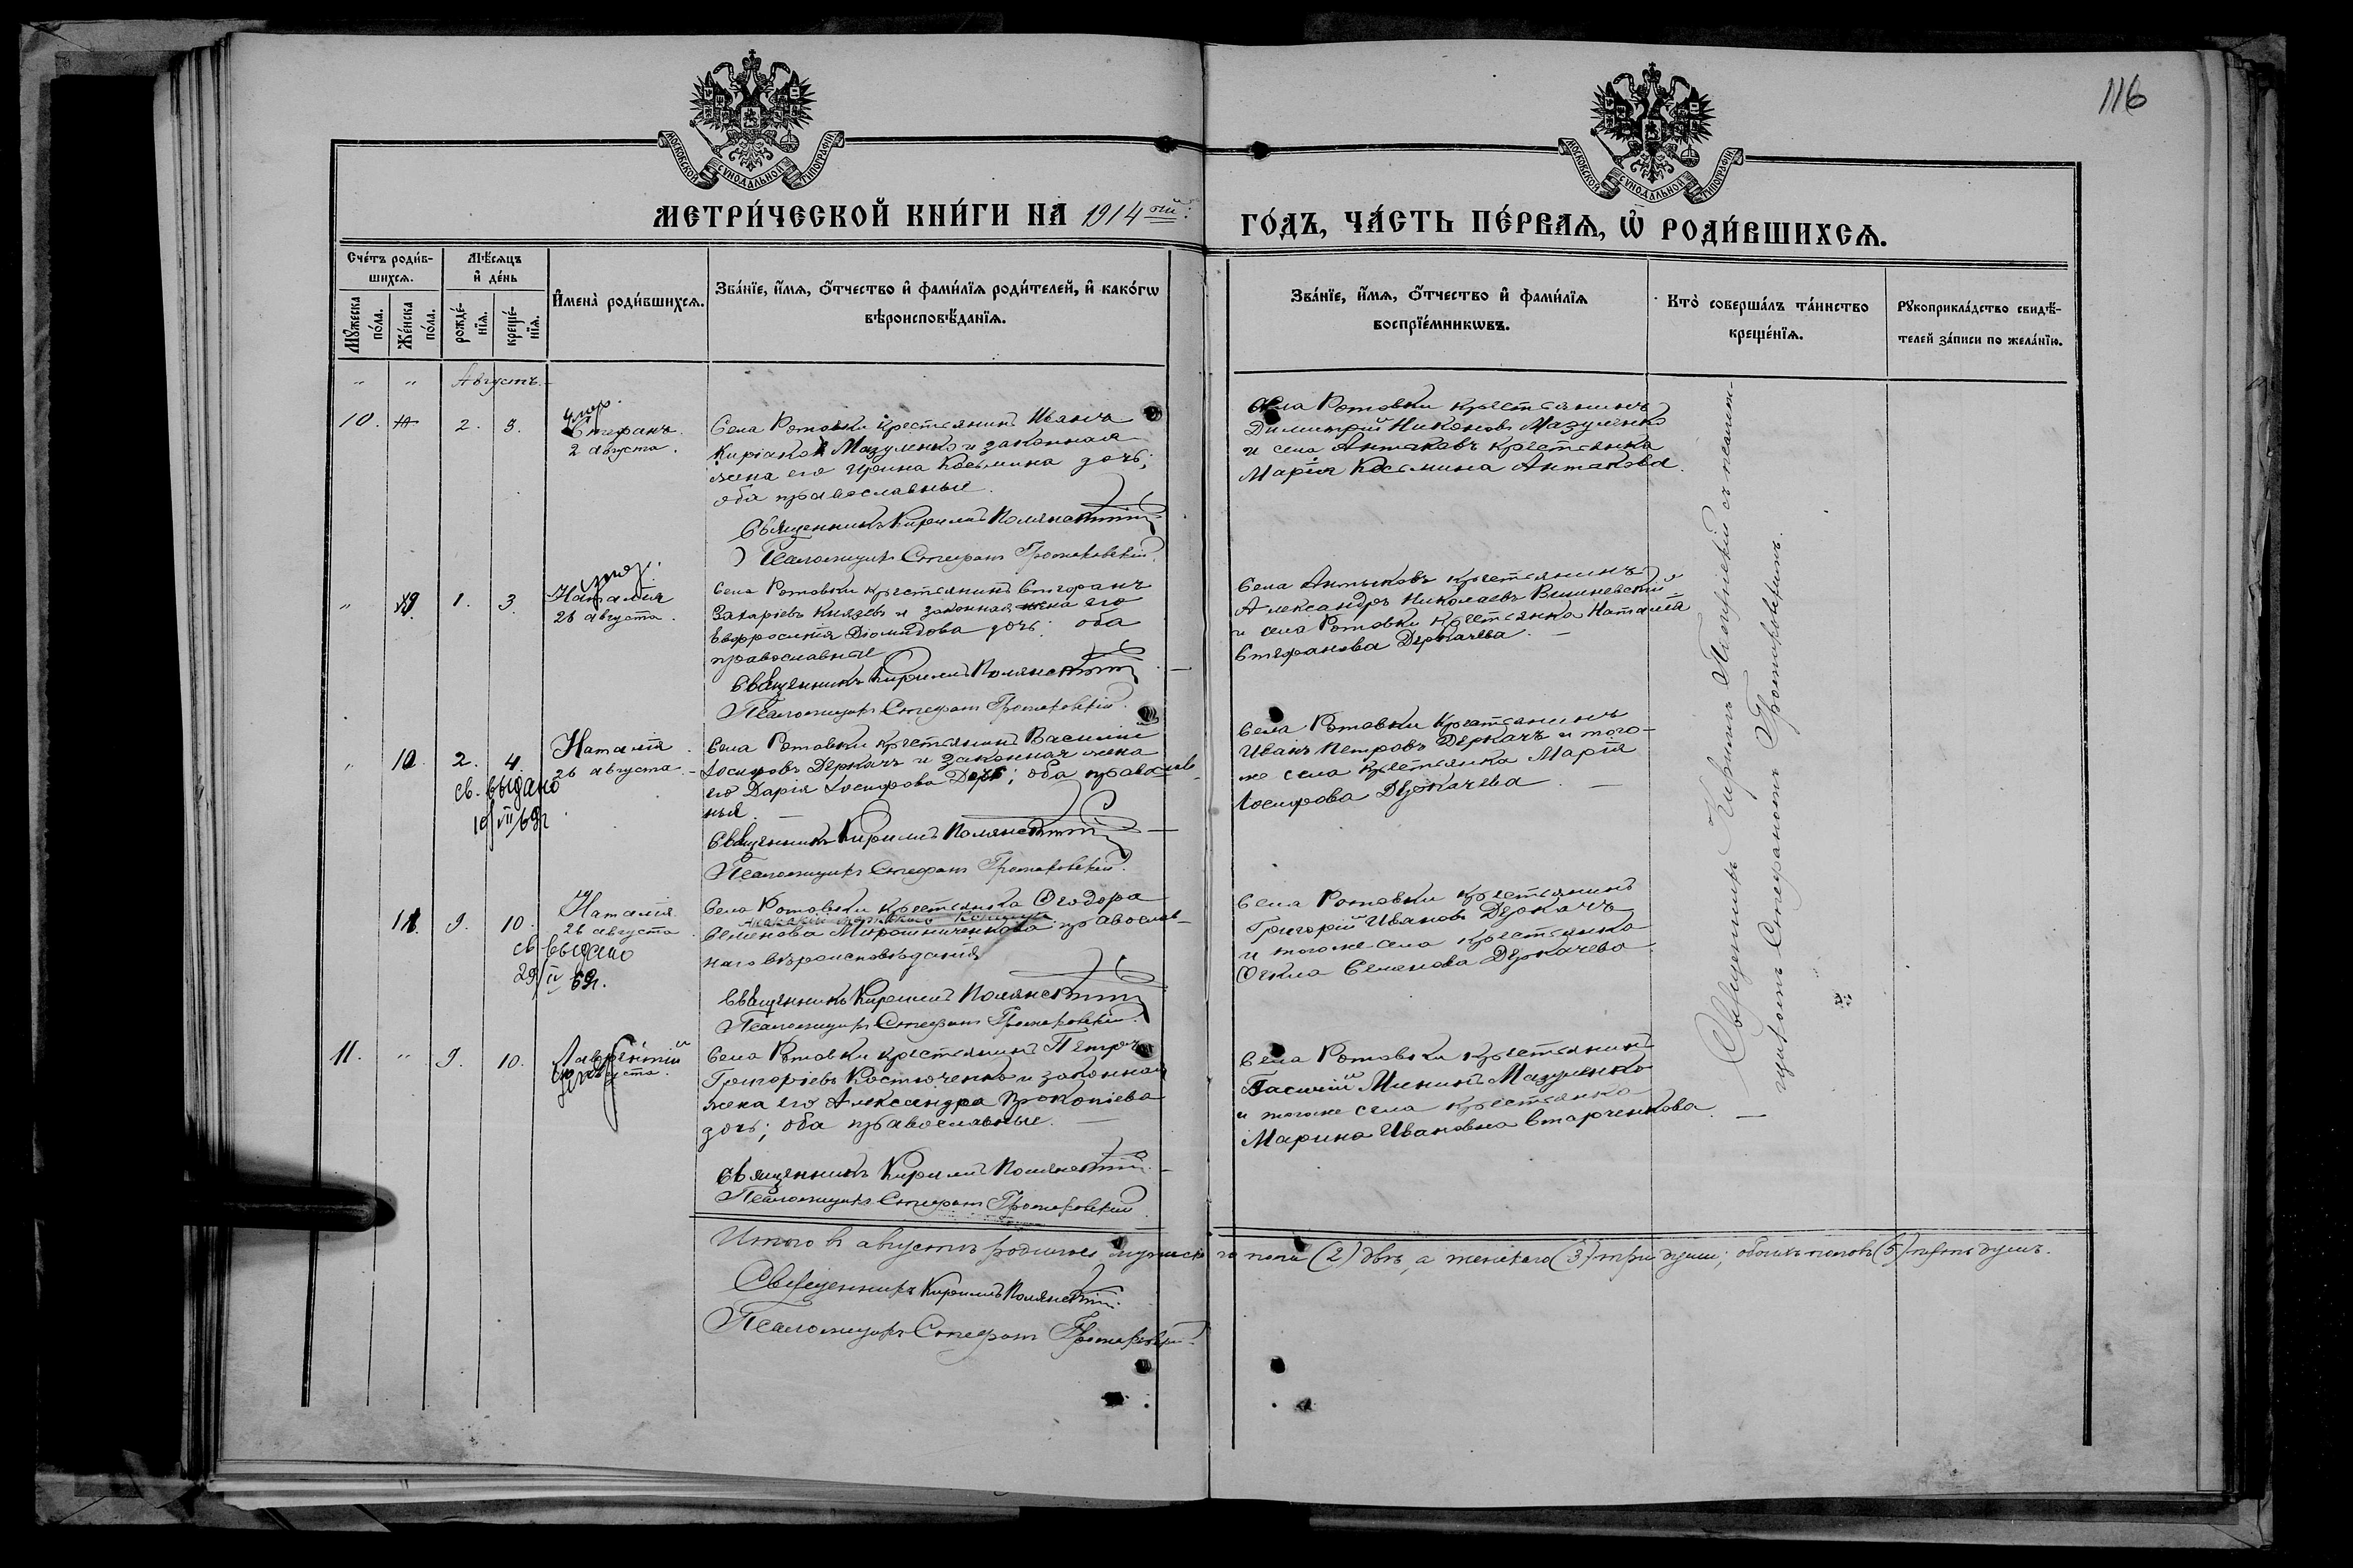 116
МОСКОВСКОЙ СУНОДАЛЬНОЙ ТИПОГРАФІИ
МОСКОВСКОЙ СУНОДАЛЬНОЙ ТИПОГРАФІИ
МЕТРИ́ЧЕСКОЙ КНИ́ГИ НА 1914 ый
ГО́ДЪ, ЧА́СТЬ ПЕ́РВАѦ, Ѿ РОДИ́ВШИХСѦ.
Сче́тъ роди́в-
шихсѧ.
Мꙋжеска
по́ла.
Же́нска
по́ла.
Мѣ́сѧцъ
и҆ де́нь
рожде́-
нїѧ.
креще́-
нїѧ.
И҆мена̀ роди́вшихсѧ.
Зва́нїе, и҆́мѧ, ѻ҆́тчество и҆ фами́лїѧ роди́телей, и҆ како́гѡ
вѣроисповѣ́данїѧ.
Зва́нїе, и҆́мѧ, ѻ҆́тчество и҆ фами́лїѧ
воспрїе́мникѡвъ.
Кто̀ соверша́лъ та́инство
креще́нїѧ.
Рꙋкоприкла́дство свидѣ́-
телей за́писи по жела́нїю.
" " Августъ.
10. 2. 3.
умер.
Стефанъ.
2 августа.
Села Ротовки крестьянинъ Иванъ
Киріаковъ Мазуленко и законная
жена его Ирина Косьмина дочь;
оба православные.
Священникъ Кирилъ Полянскій
Псаломщикъ Стефанъ
Села Ротовки крестьянинъ
Димитрій Никоновъ Мазуленко
и села крестьянка
Марія Косьмина
" 9. 1. 3.
Наталія
26 августа.
Села Ротовки крестьянинъ
Захаріевъ Князевъ и законная жена его
Евфросинія Діомидова дочь; оба
православные
Священникъ Кирилъ Полянскій
Псаломщикъ Стефанъ
Села крестьянинъ
Александръ Николаевъ Вишневскій
и села Ротовки крестьянка Наталія
Стефанова Деркачева. —
" 10 2. 4.
Наталія
26 августа. -
св. выдано
19/VII 69г
Села Ротовки крестьянинъ Василій
Іосифовъ Деркачъ и законная жена
его Дарія Іосифова дочь; оба православ-
ные. —
Священникъ Кирилъ Полянскій
Псаломщикъ Стефанъ
Села Ротовки крестьянинъ
Иванъ Петровъ Деркачъ и того-
же села крестьянка Марія
Іосифова Деркачева. —
11. 9. 10.
Наталія
26 августа
св выдано
29/IV 69г.
Села Ротовки крестьянка Ѳеодора
Семенова Мирошниченкова православ-
наго вѣроисповѣданія
Священникъ Кирилъ Полянскій
Псаломщикъ Стефанъ
Села Ротовки крестьянинъ
Григорій Ивановъ Деркачъ
и того же села крестьянка
Ѳекла Семенова Деркачева
11. " 9. 10.
Лаврентій
августа.
Села Ротовки крестьянинъ Петръ
Григоріевъ Костюченко и законная
жена его Александра Прокопіева
дочь; оба православные. —
Священникъ Кирилъ Полянскій
Псаломщикъ Стефанъ
Села Ротовки крестьянинъ
Василій Мининъ Мазуленко
и того же села крестьянка
Марина Ивановна Старченкова. —
Священникъ Кирилъ съ псалом-
щикомъ Стефаномъ
Итого въ августѣ родилось мужеска го пола (2) двѣ, а женскаго (3) три души; обоихъ половъ (5) пять душъ.
Священникъ Кирилъ Полянскій
Псаломщикъ Стефанъ